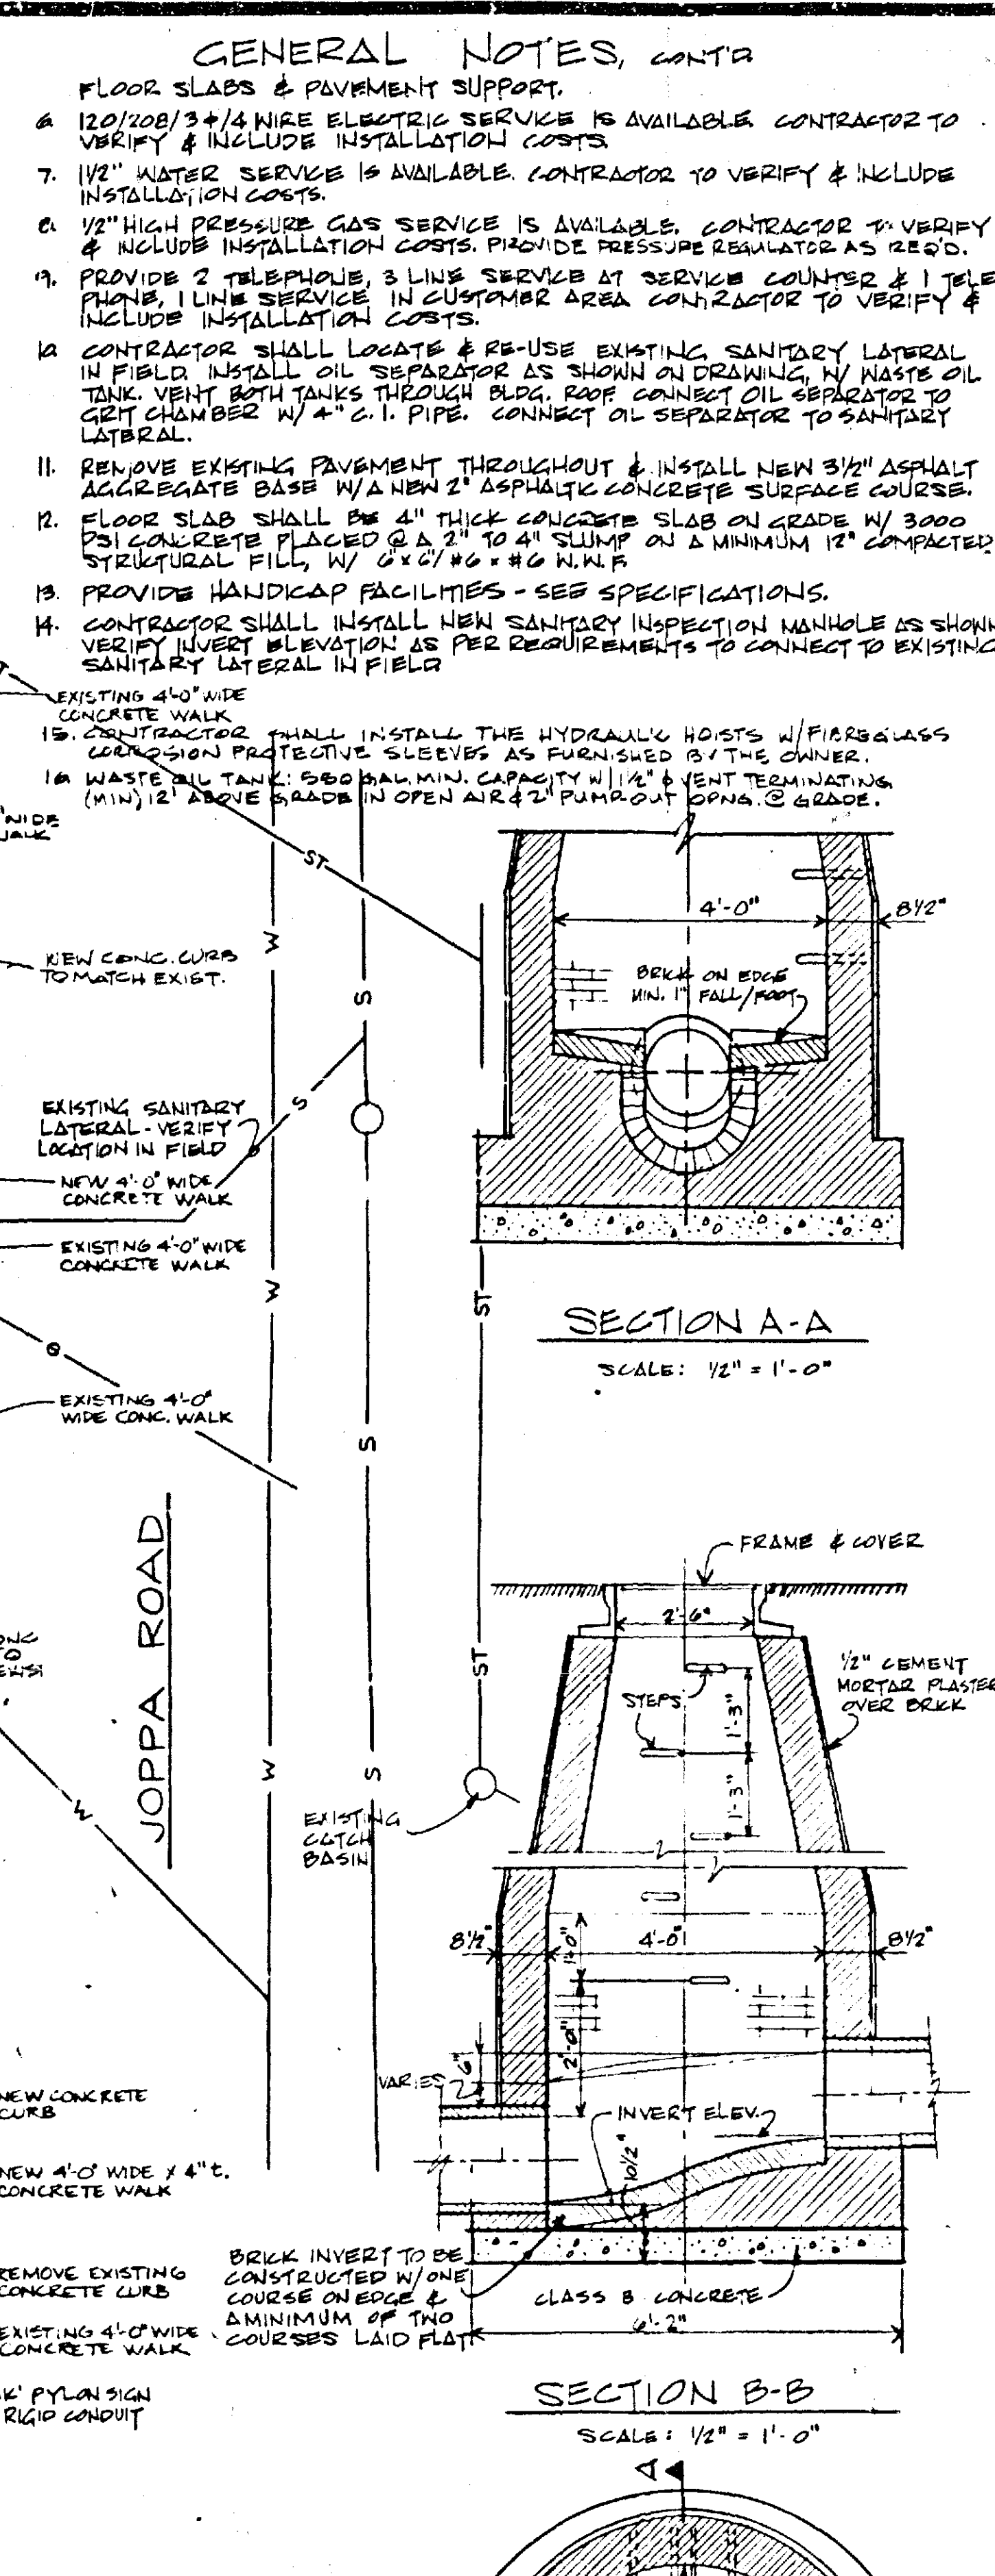 GENERAL NOTES, CONT'D
FLOOR SLABS & PAVEMENT SUPPORT.
6. 120/208/3φ/4 WIRE ELECTRIC SERVICE IS AVAILABLE. CONTRACTOR TO
VERIFY & INCLUDE INSTALLATION COSTS.
7. 1 1/2" WATER SERVICE IS AVAILABLE. CONTRACTOR TO VERIFY & INCLUDE
INSTALLATION COSTS.
8. 1/2" HIGH PRESSURE GAS SERVICE IS AVAILABLE. CONTRACTOR TO VERIFY
& INCLUDE INSTALLATION COSTS. PROVIDE PRESSURE REGULATOR AS REQ'D.
9. PROVIDE 2 TELEPHONE, 3 LINE SERVICE AT SERVICE COUNTER & 1 TELE
PHONE, 1 LINE SERVICE IN CUSTOMER AREA CONTRACTOR TO VERIFY &
INCLUDE INSTALLATION COSTS.
10. CONTRACTOR SHALL LOCATE & RE-USE EXISTING SANITARY LATERAL
IN FIELD. INSTALL OIL SEPARATOR AS SHOWN ON DRAWING, W/ WASTE OIL
TANK. VENT BOTH TANKS THROUGH BLDG. ROOF. CONNECT OIL SEPARATOR TO
GRIT CHAMBER W/ 4" C.I. PIPE. CONNECT OIL SEPARATOR TO SANITARY
LATERAL.
11. REMOVE EXISTING PAVEMENT THROUGHOUT & INSTALL NEW 3 1/2" ASPHALT
AGGREGATE BASE W/ A NEW 2" ASPHALTIC CONCRETE SURFACE COURSE.
12. FLOOR SLAB SHALL BE 4" THICK CONCRETE SLAB ON GRADE W/ 3000
PSI CONCRETE PLACED @ A 2" TO 4" SLUMP ON A MINIMUM 12" COMPACTED
STRUCTURAL FILL, W/ 6"x6"/#6x#6 W.W.F.
13. PROVIDE HANDICAP FACILITIES - SEE SPECIFICATIONS.
14. CONTRACTOR SHALL INSTALL NEW SANITARY INSPECTION MANHOLE AS SHOWN
VERIFY INVERT ELEVATION AS PER REQUIREMENTS TO CONNECT TO EXISTING
SANITARY LATERAL IN FIELD
EXISTING 4'-0" WIDE
CONCRETE WALK
15. CONTRACTOR SHALL INSTALL THE HYDRAULIC HOISTS W/ FIBREGLASS
CORROSION PROTECTIVE SLEEVES AS FURNISHED BY THE OWNER.
16. WASTE OIL TANK: 550 GAL. MIN. CAPACITY W/ 1 1/2" φ VENT TERMINATING
(MIN) 12' ABOVE GRADE IN OPEN AIR & 2" PUMP-OUT OPNG. @ GRADE.
WIDE
WALK
ST
4'-0"
8 1/2"
W
NEW CONC. CURB
TO MATCH EXIST.
BRICK ON EDGE
MIN. 1" FALL/FOOT
S
S
EXISTING SANITARY
LATERAL - VERIFY
LOCATION IN FIELD
NEW 4'-0" WIDE
CONCRETE WALK
EXISTING 4'-0" WIDE
CONCRETE WALK
W
ST
SECTION A-A
SCALE: 1/2" = 1'-0"
EXISTING 4'-0"
WIDE CONC. WALK
S
JOPPA ROAD
FRAME & COVER
2'-6"
ST
1/2" CEMENT
MORTAR PLASTER
OVER BRICK
STEPS
1'-3"
1'-3"
W
S
W
EXISTING
CATCH
BASIN
8 1/2"
1'-0"
4'-0"
8 1/2"
2'-0"
6"
VARIES
NEW CONCRETE
CURB
INVERT ELEV.
10 1/2"
NEW 4'-0" WIDE x 4" t.
CONCRETE WALK
REMOVE EXISTING
CONCRETE CURB
BRICK INVERT TO BE
CONSTRUCTED W/ ONE
COURSE ON EDGE &
A MINIMUM OF TWO
COURSES LAID FLAT
CLASS B CONCRETE
6'-2"
EXISTING 4'-0" WIDE
CONCRETE WALK
PYLON SIGN
RIGID CONDUIT
SECTION B-B
SCALE: 1/2" = 1'-0"
A